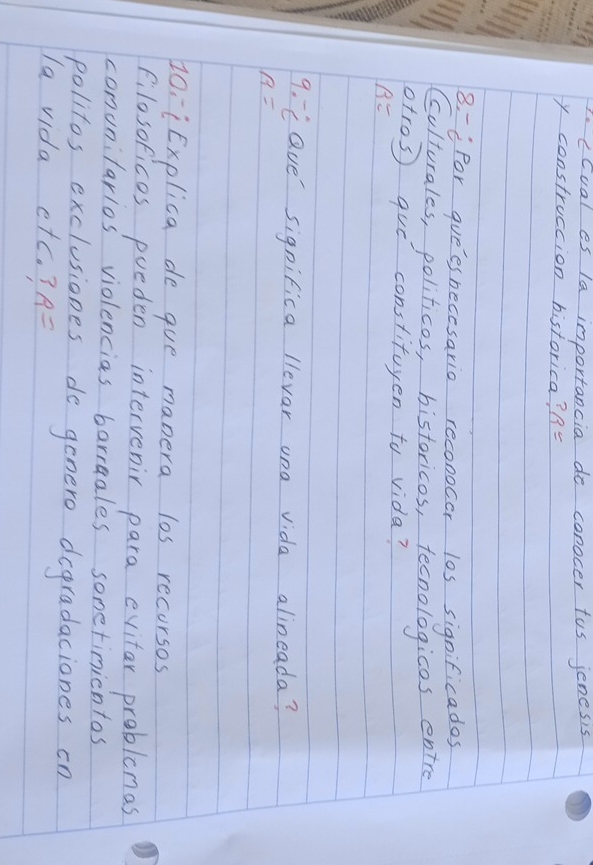 7.- ¿Cual es la importancia de conocer tus jenesis
y construccion historica? R=
8.- ¿Por qué es necesario reconocer los significados
(Culturales, politicos, historicos, tecnologicos entre
otros) que constituyen tu vida?
R=
9.- ¿Qué significa llevar una vida alineada?
R=
10.- ¿Explica de que manera los recursos
filosoficos pueden intervenir para evitar problemas
comunitarios violencias barriales sometimientos
politos exclusiones de genero degradaciones en
la vida etc.? R=